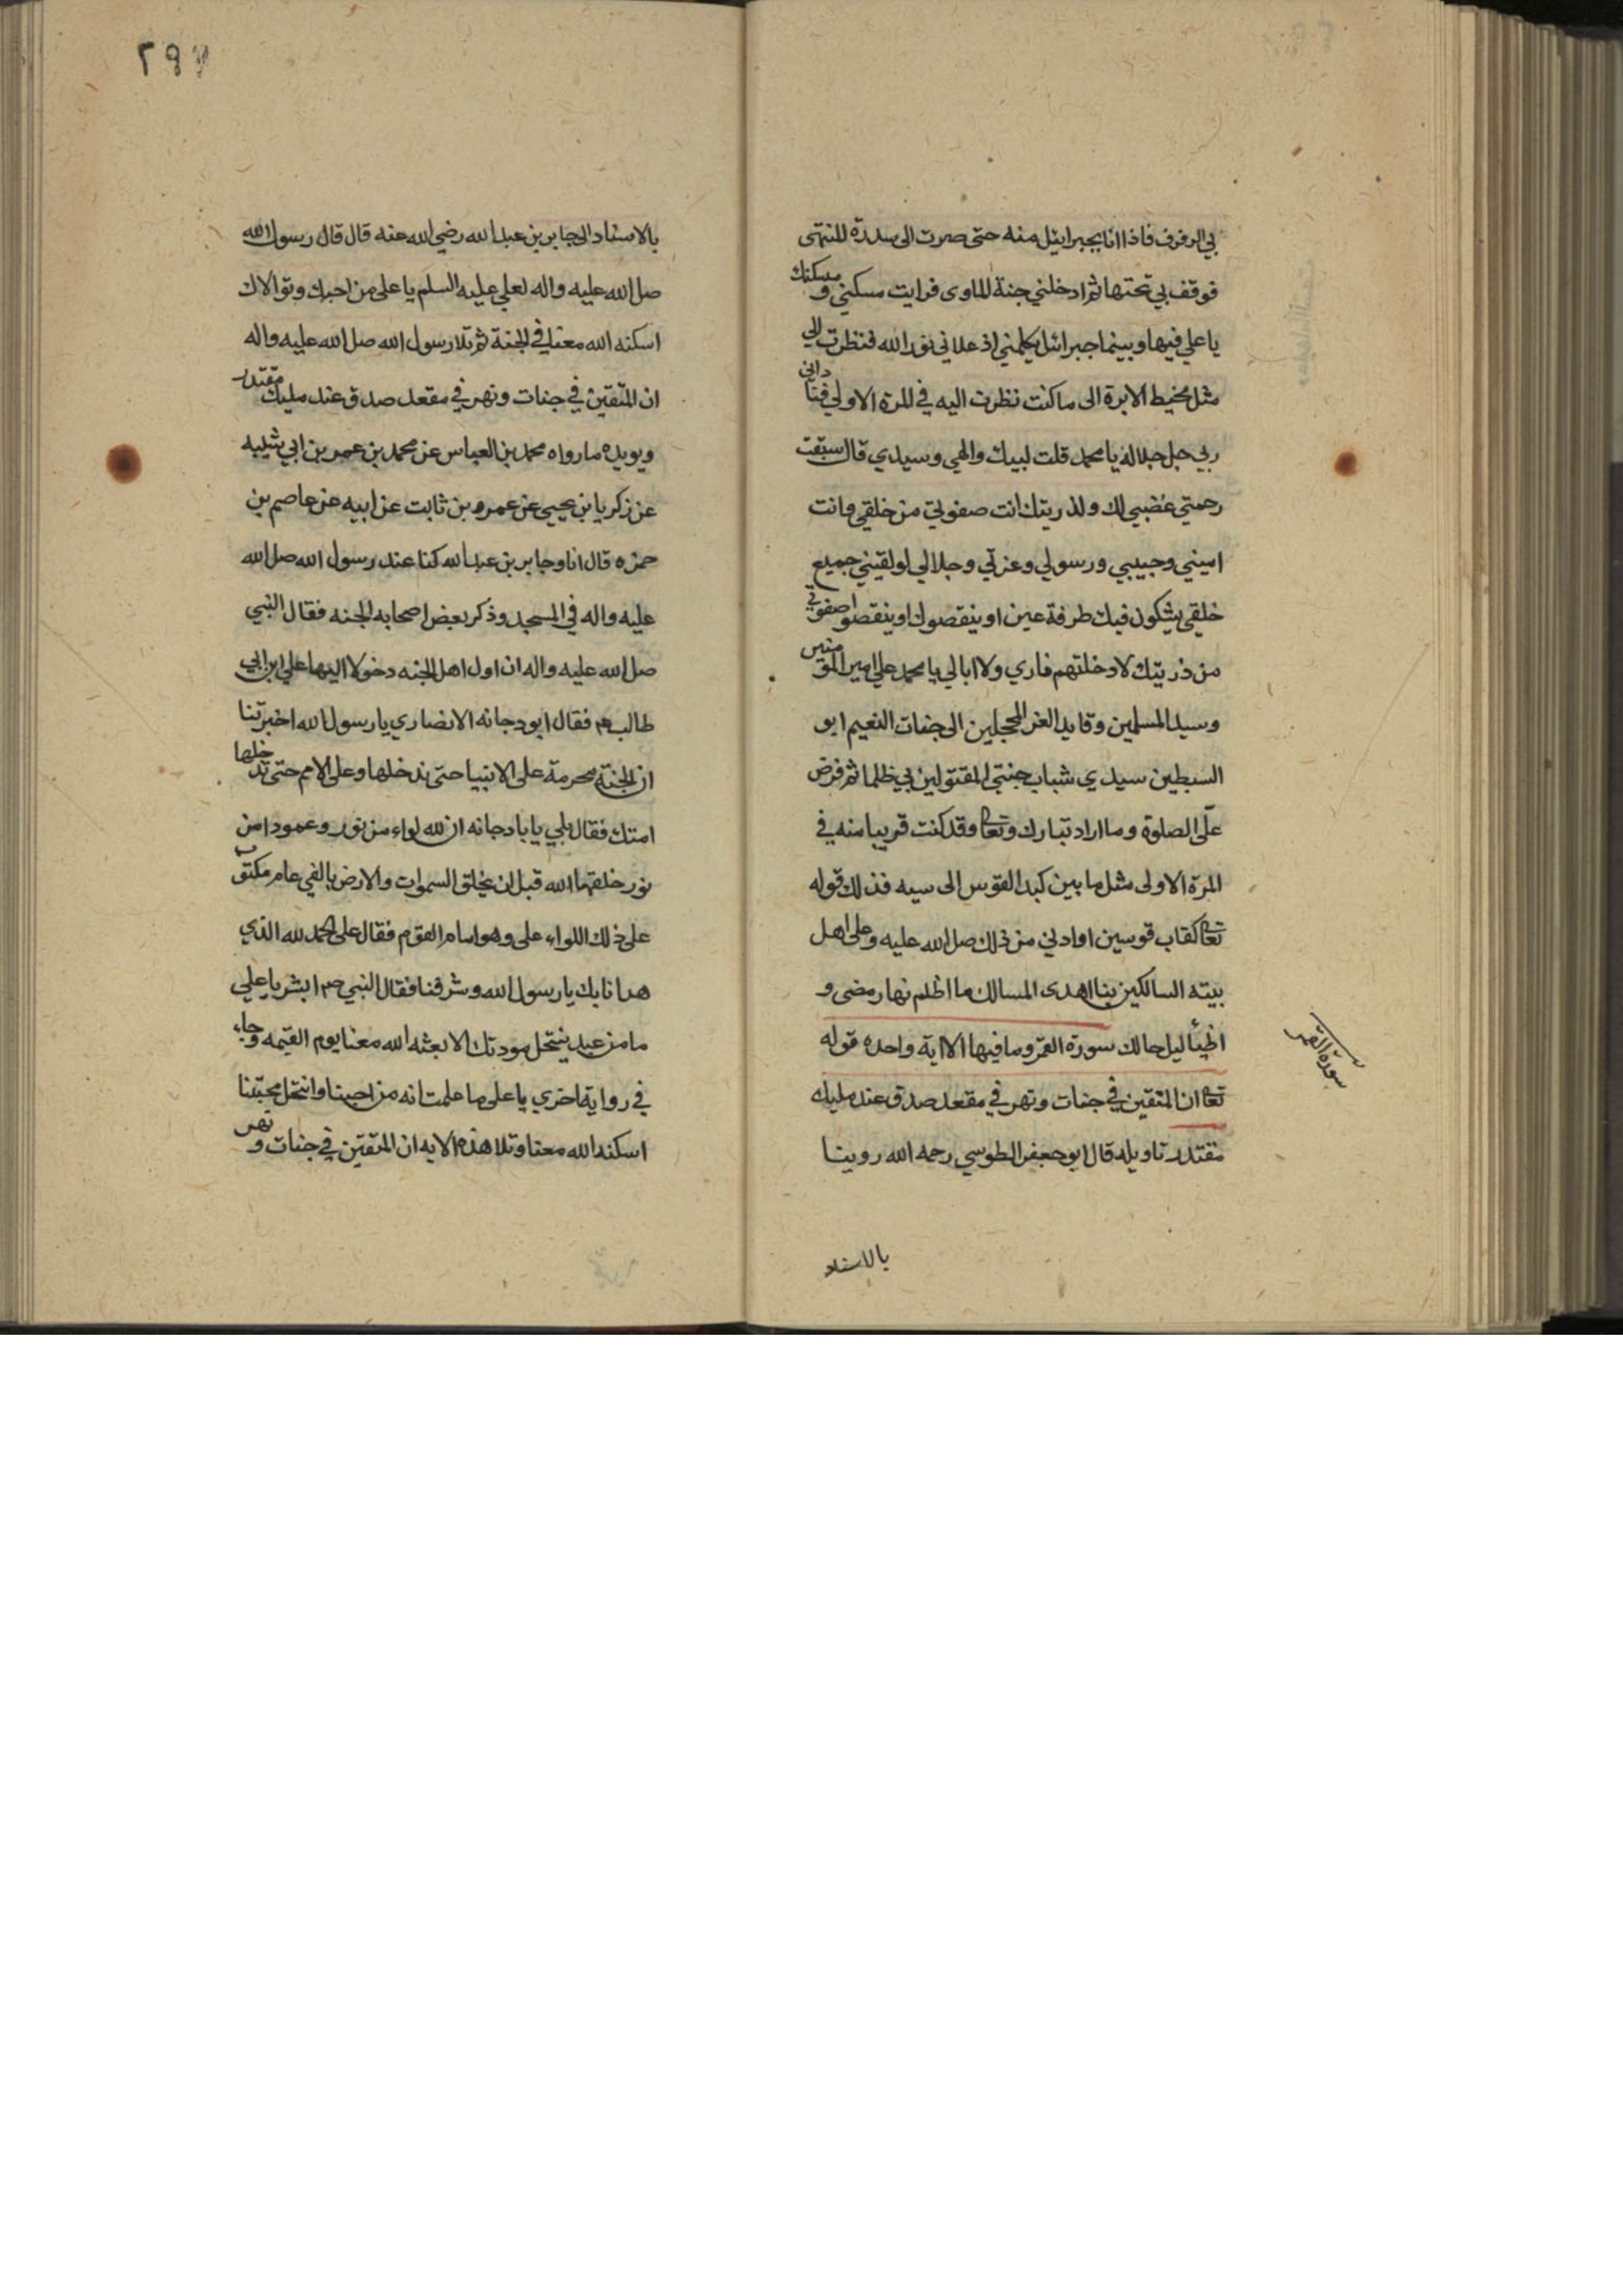 بي الرفرف فاذا انا بجبرائيل منه حتى صرت الى سدرة المنتهى
فوقف بي تحتها ثم ادخلني جنة الماوى فرايت مسكني ومسكنك
يا علي فيها وبينما جبرائيل يكلمني اذ علاني نور الله فنظرت الي
مثل مخيط الابرة الى ما كنت نظرت اليه في المرة الاولي فناداني
ربي جل جلاله يا محمد قلت لبيك والهي وسيدي قال سبقت
رحمتي غضبي لك ولذريتك انت صفوتي من خلقي وانت
اميني وحبيبي ورسولي وعزتي وجلالي لو لقيني جميع
خلقي يشكون فيك طرفة عين او ينقصوك او ينقصوا صفوتي
من ذريتك لادخلتهم ناري ولا ابالي يا محمد علي امير المؤمنين
وسيد المسلمين وقايد الغر المحجلين الى جنات النعيم ابو
السبطين سيدي شباب جنتي المقتولين بي ظلما ثم فرض
علّى الصلوة وما اراد تبارك وتعا وقد كنت قريبا منه في
المرة الاولى مثل ما بين كبد القوس الى سيه فذلك قوله
تعا كقاب قوسين او ادني من ذلك صل الله عليه وعلى اهل
بيته السالكين بنا اهدى المسالك ما اظلم نهار مضى و
اضٔيا ليل حالك سورة القمر وما فيها الا اية واحده قوله
تعا ان المتقين في جنات ونهر في مقعد صدق عند مليك
مقتدر تاويله قال ابو جعفر الطوسي رحمه الله روينا
بالاسناد
سورة القمر
٢٩٧
بالاسناد الى جابر بن عبد الله رضي الله عنه قال قال رسول الله
صل الله عليه واله لعلي عليه السلم يا على من احبك وتوالاك
اسكنه الله معنا في الجنة ثم تلا رسول الله صل الله عليه واله
ان المتّقين في جنات ونهر في مقعد صدق عند مليك مقتدر
ويويده ما رواه محمد بن العباس عن محمد بن عمر بن ابي شيبه
عن زكريا بن يحيي عن عمرو بن ثابت عن ابيه عن عاصم بن
حمزه قال انا وجابر بن عبد الله كنا عند رسول الله صل الله
عليه واله في المسجد وذكر بعض اصحابه الجنه فقال النبي
صل الله عليه واله ان اول اهل الجنه دخولا اليها علي ابن ابي
طالب م فقال ابو دجانه الانصاري يا رسول الله اخبرتنا
ان الجنة محرمة على الانبيا حتى تدخلها وعلى الامم حتى تدخلها
امتك فقال بلي يا با دجانه ان لله لواء من نور وعمودا من
نور خلقهما الله قبل ان يخلق السموات والارض بالفي عام مكتوب
على ذلك اللواء على وهو امام القوم فقال على الحمد لله الذي
هدانا بك يا رسول الله وشرفنا فقال النبي صم ابشر يا علي
ما من عبد ينتحل مودتك الا بعثه الله معنا يوم القيمه وجاء
في رواية اخري يا على ما علمت انه من احبنا وانتحل محبّتنا
اسكنه الله معنا وتلا هذه الايه ان المتّقين في جنات ونهر